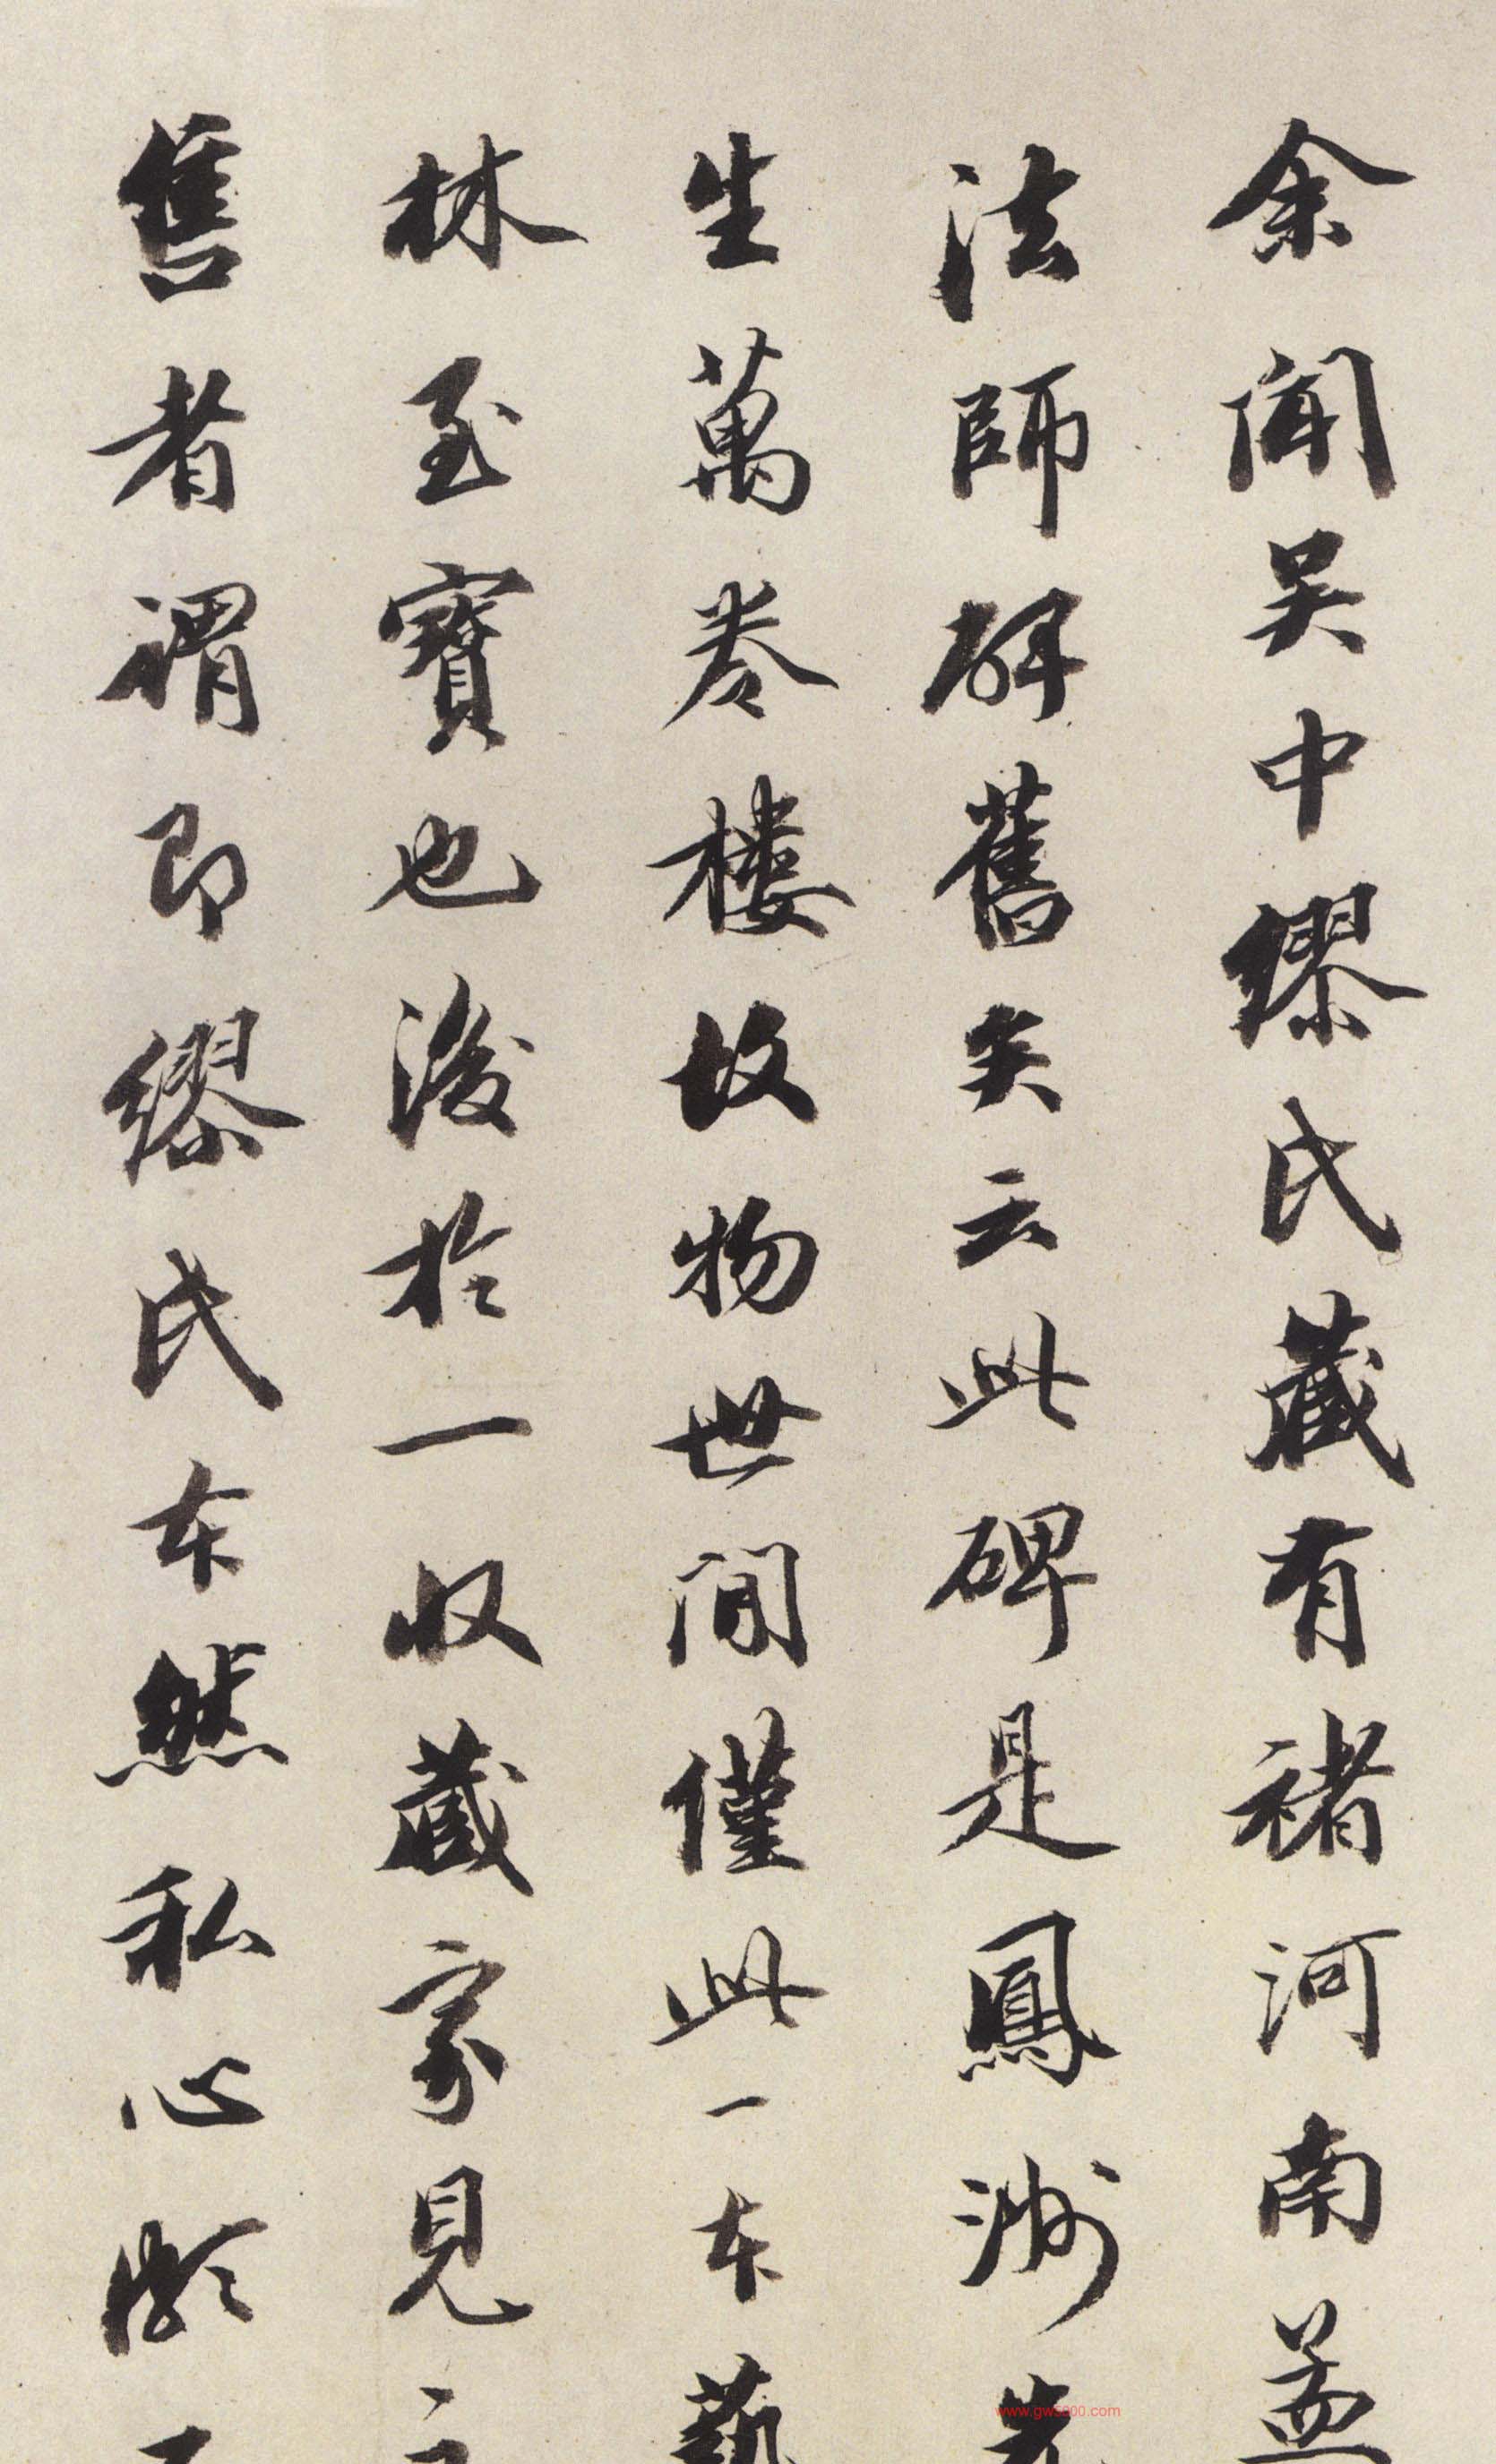 余聞吴中繆氏藏有褚河南孟
法師碑舊矣云此碑是鳳洲先
生萬卷樓故物世間僅此一本藝
林至寶也後於一收藏家見
售者謂即繆氏本然私心疑